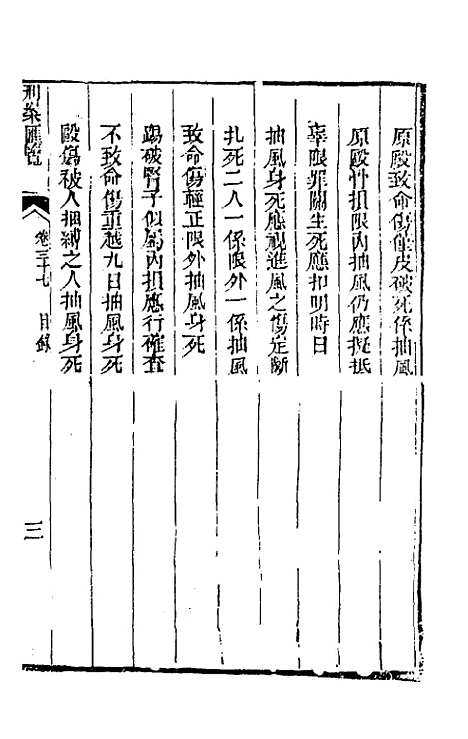 原毆致命傷僅皮破死係抽風
原毆骨損限內抽風仍應擬抵
辜限罪關生死應扣明時日
抽風身死應視進風之傷定斷
扎死二人一係限外一係抽風
致命傷輕正限外抽風身死
踢破腎子似屬內損應行確查
不致命傷重越九日抽風身死
毆傷被人捆縛之人抽風身死
刑案匯覽
卷三十七 目錄
三